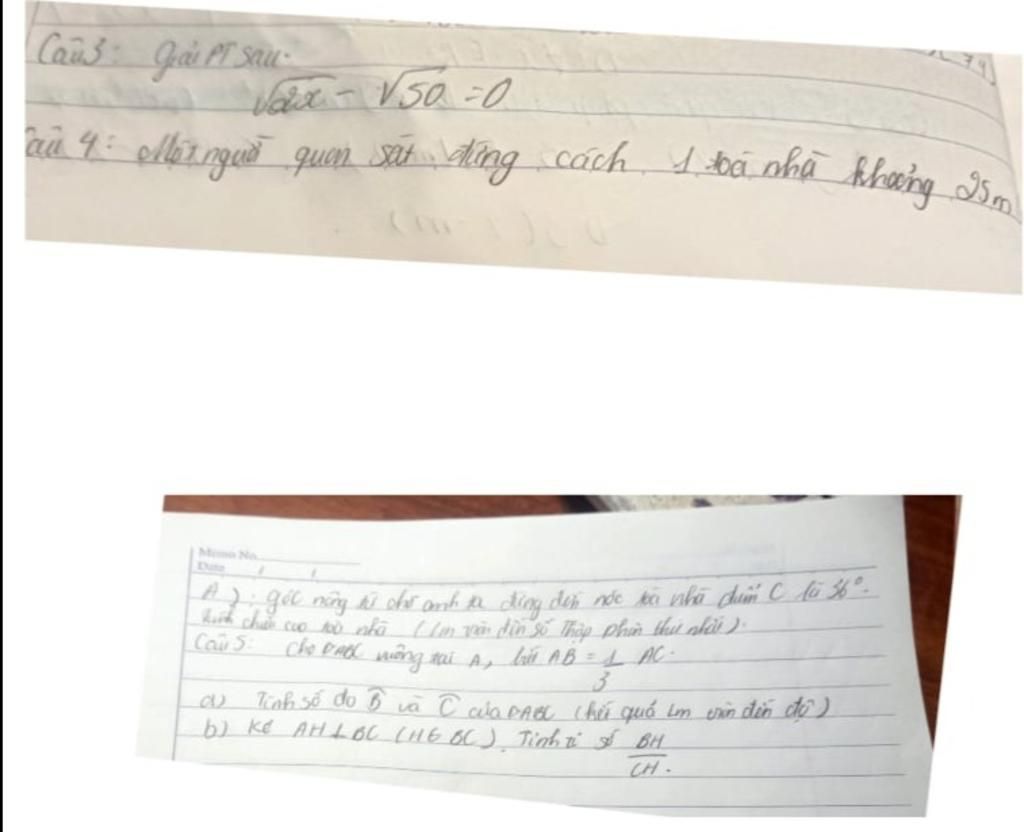 Câu 3: Giải PT sau.
√2x - √50 = 0
Câu 4: Một người quan sát đứng cách 1 toà nhà khoảng 25m
Memo No.
Date / /
A); góc nâng từ chỗ anh ta đứng đến nóc toà nhà điểm C là 36°.
Tính chiều cao toà nhà (làm tròn đến số thập phân thứ nhất).
Câu 5: Cho ΔABC vuông tại A, biết AB = 1/3 AC.
a) Tính số đo B̂ và Ĉ của ΔABC (kết quả làm tròn đến độ)
b) Kẻ AH ⊥ BC (H ∈ BC). Tính tỉ số BH/CH.